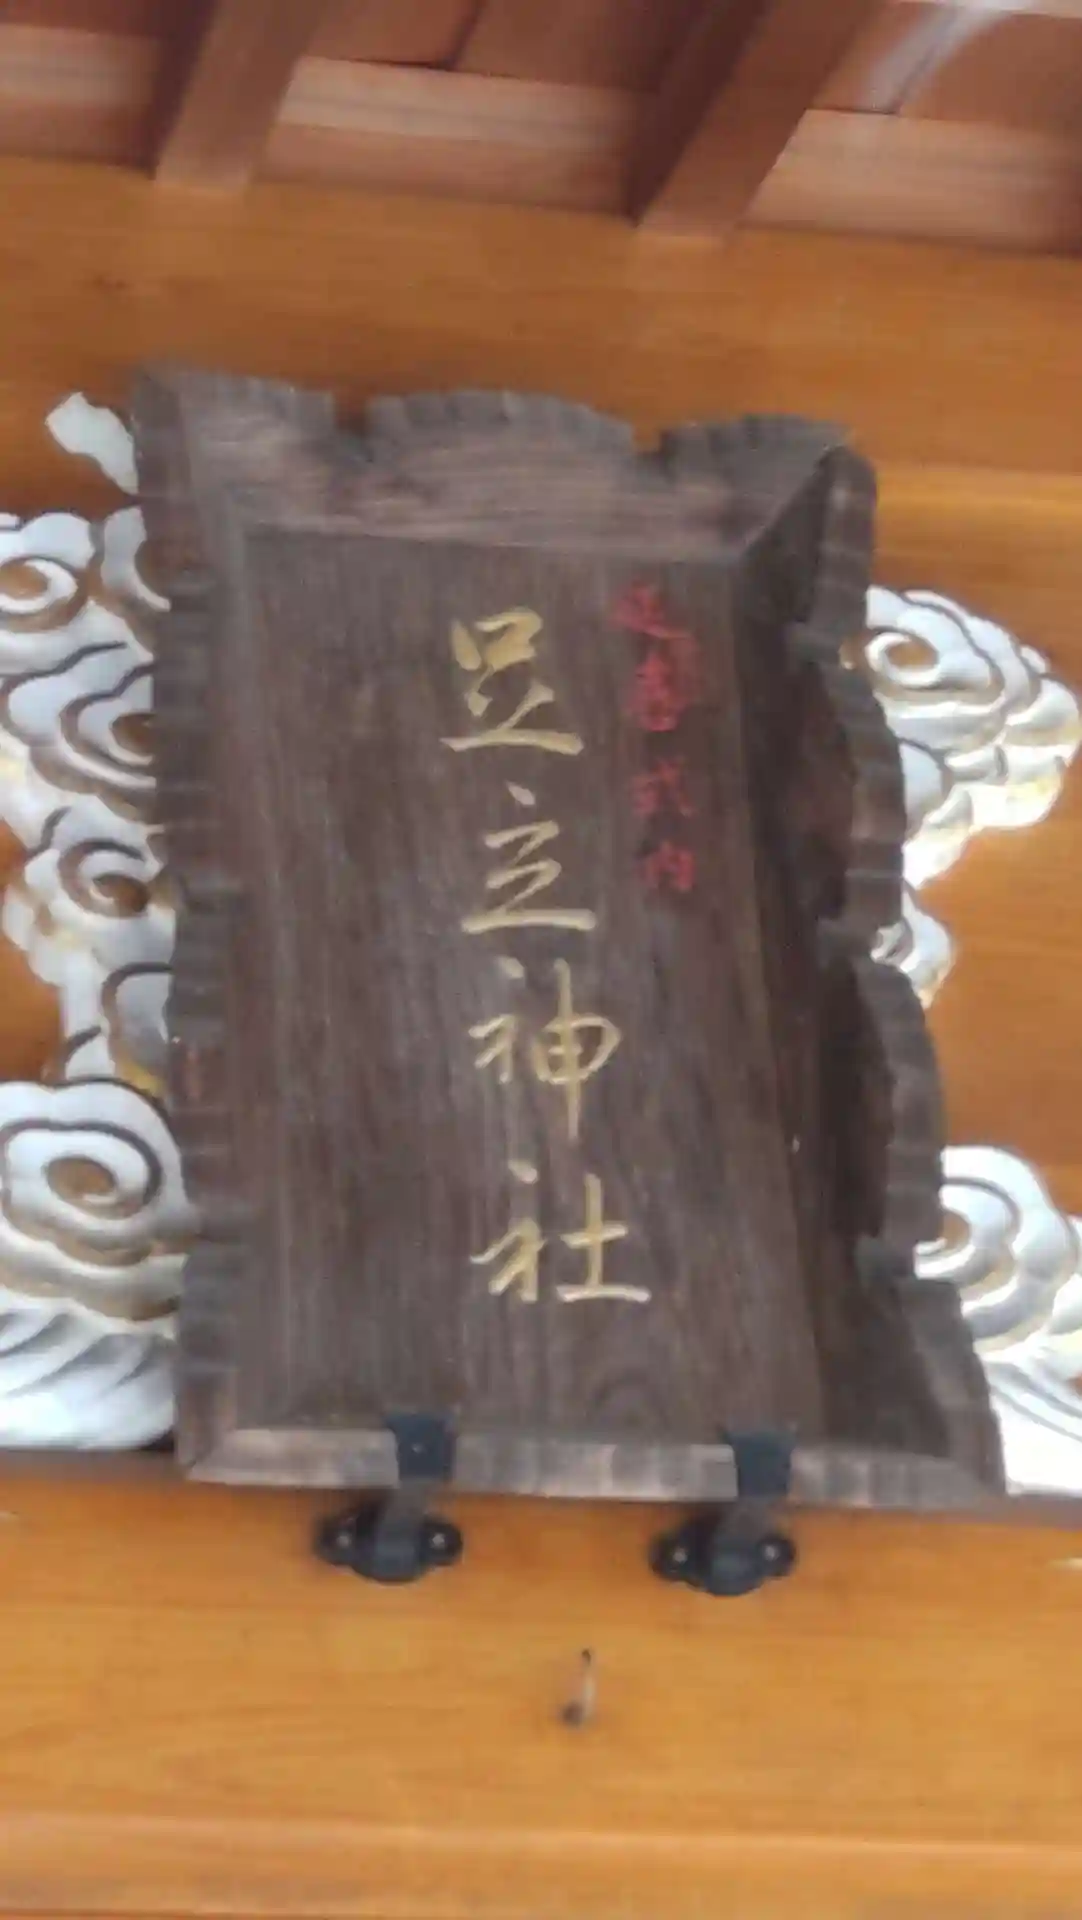 延喜式内
足立神社